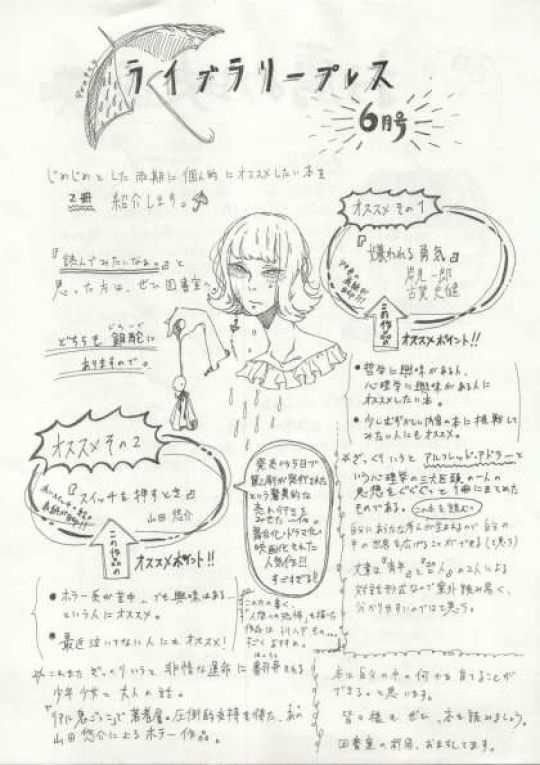 ライブラリープレス
6月号
じめじめとした雨期に個人的にオススメしたい本を
2冊 紹介します。
『読んでみたいなぁ。』と
思った方は、ぜひ図書室へ。
どちらも
ありますので。
オススメ その1
『嫌われる勇気』
岸見一郎
古賀史健
この作品の
オススメポイント!!
●哲学に興味がある人、
心理学に興味がある人に
オススメしたい本。
●少しむずかしい内容の本に挑戦して
みたい人にもオススメ。
☆ざっくりいうと アルフレッド・アドラーと
いう心理学の三大巨頭の一人の
思想をぐぐぐっと1冊にまとめた
ものである。この本を読むと
自分に新たな考えが生まれるので自分の
中の世界を広げることができる(と思う)
文章は『青年』と『哲人』の2人による
対話形式なので案外読み易く、
分かりやすいのではと思う。
オススメ その2
『スイッチを押すとき』
山田 悠介
この作品の
オススメポイント!!
発売から5日で
が発行された
という驚異的な
売れ行きを
みせた一作。
舞台化・ドラマ化・
映画化された
人気作!!
すごすぎる!!
●ホラー系が苦手、でも興味はある…
という人にオススメ。
●最近泣いてない人にもオススメ!
この方の書く、
「人間の恐怖」を描いた
作品は
☆これまた ざっくりいうと 非情な運命に翻弄される
少年少女と大人の話。
『リアル鬼ごっこ』で著者層。圧倒的支持を得た、あの
山田悠介によるホラー作品。
本は自分の中の何かを育てることが
できると思います。
皆々様も ぜひ、本を読みましょう。
図書室の利用、おまちしてます。